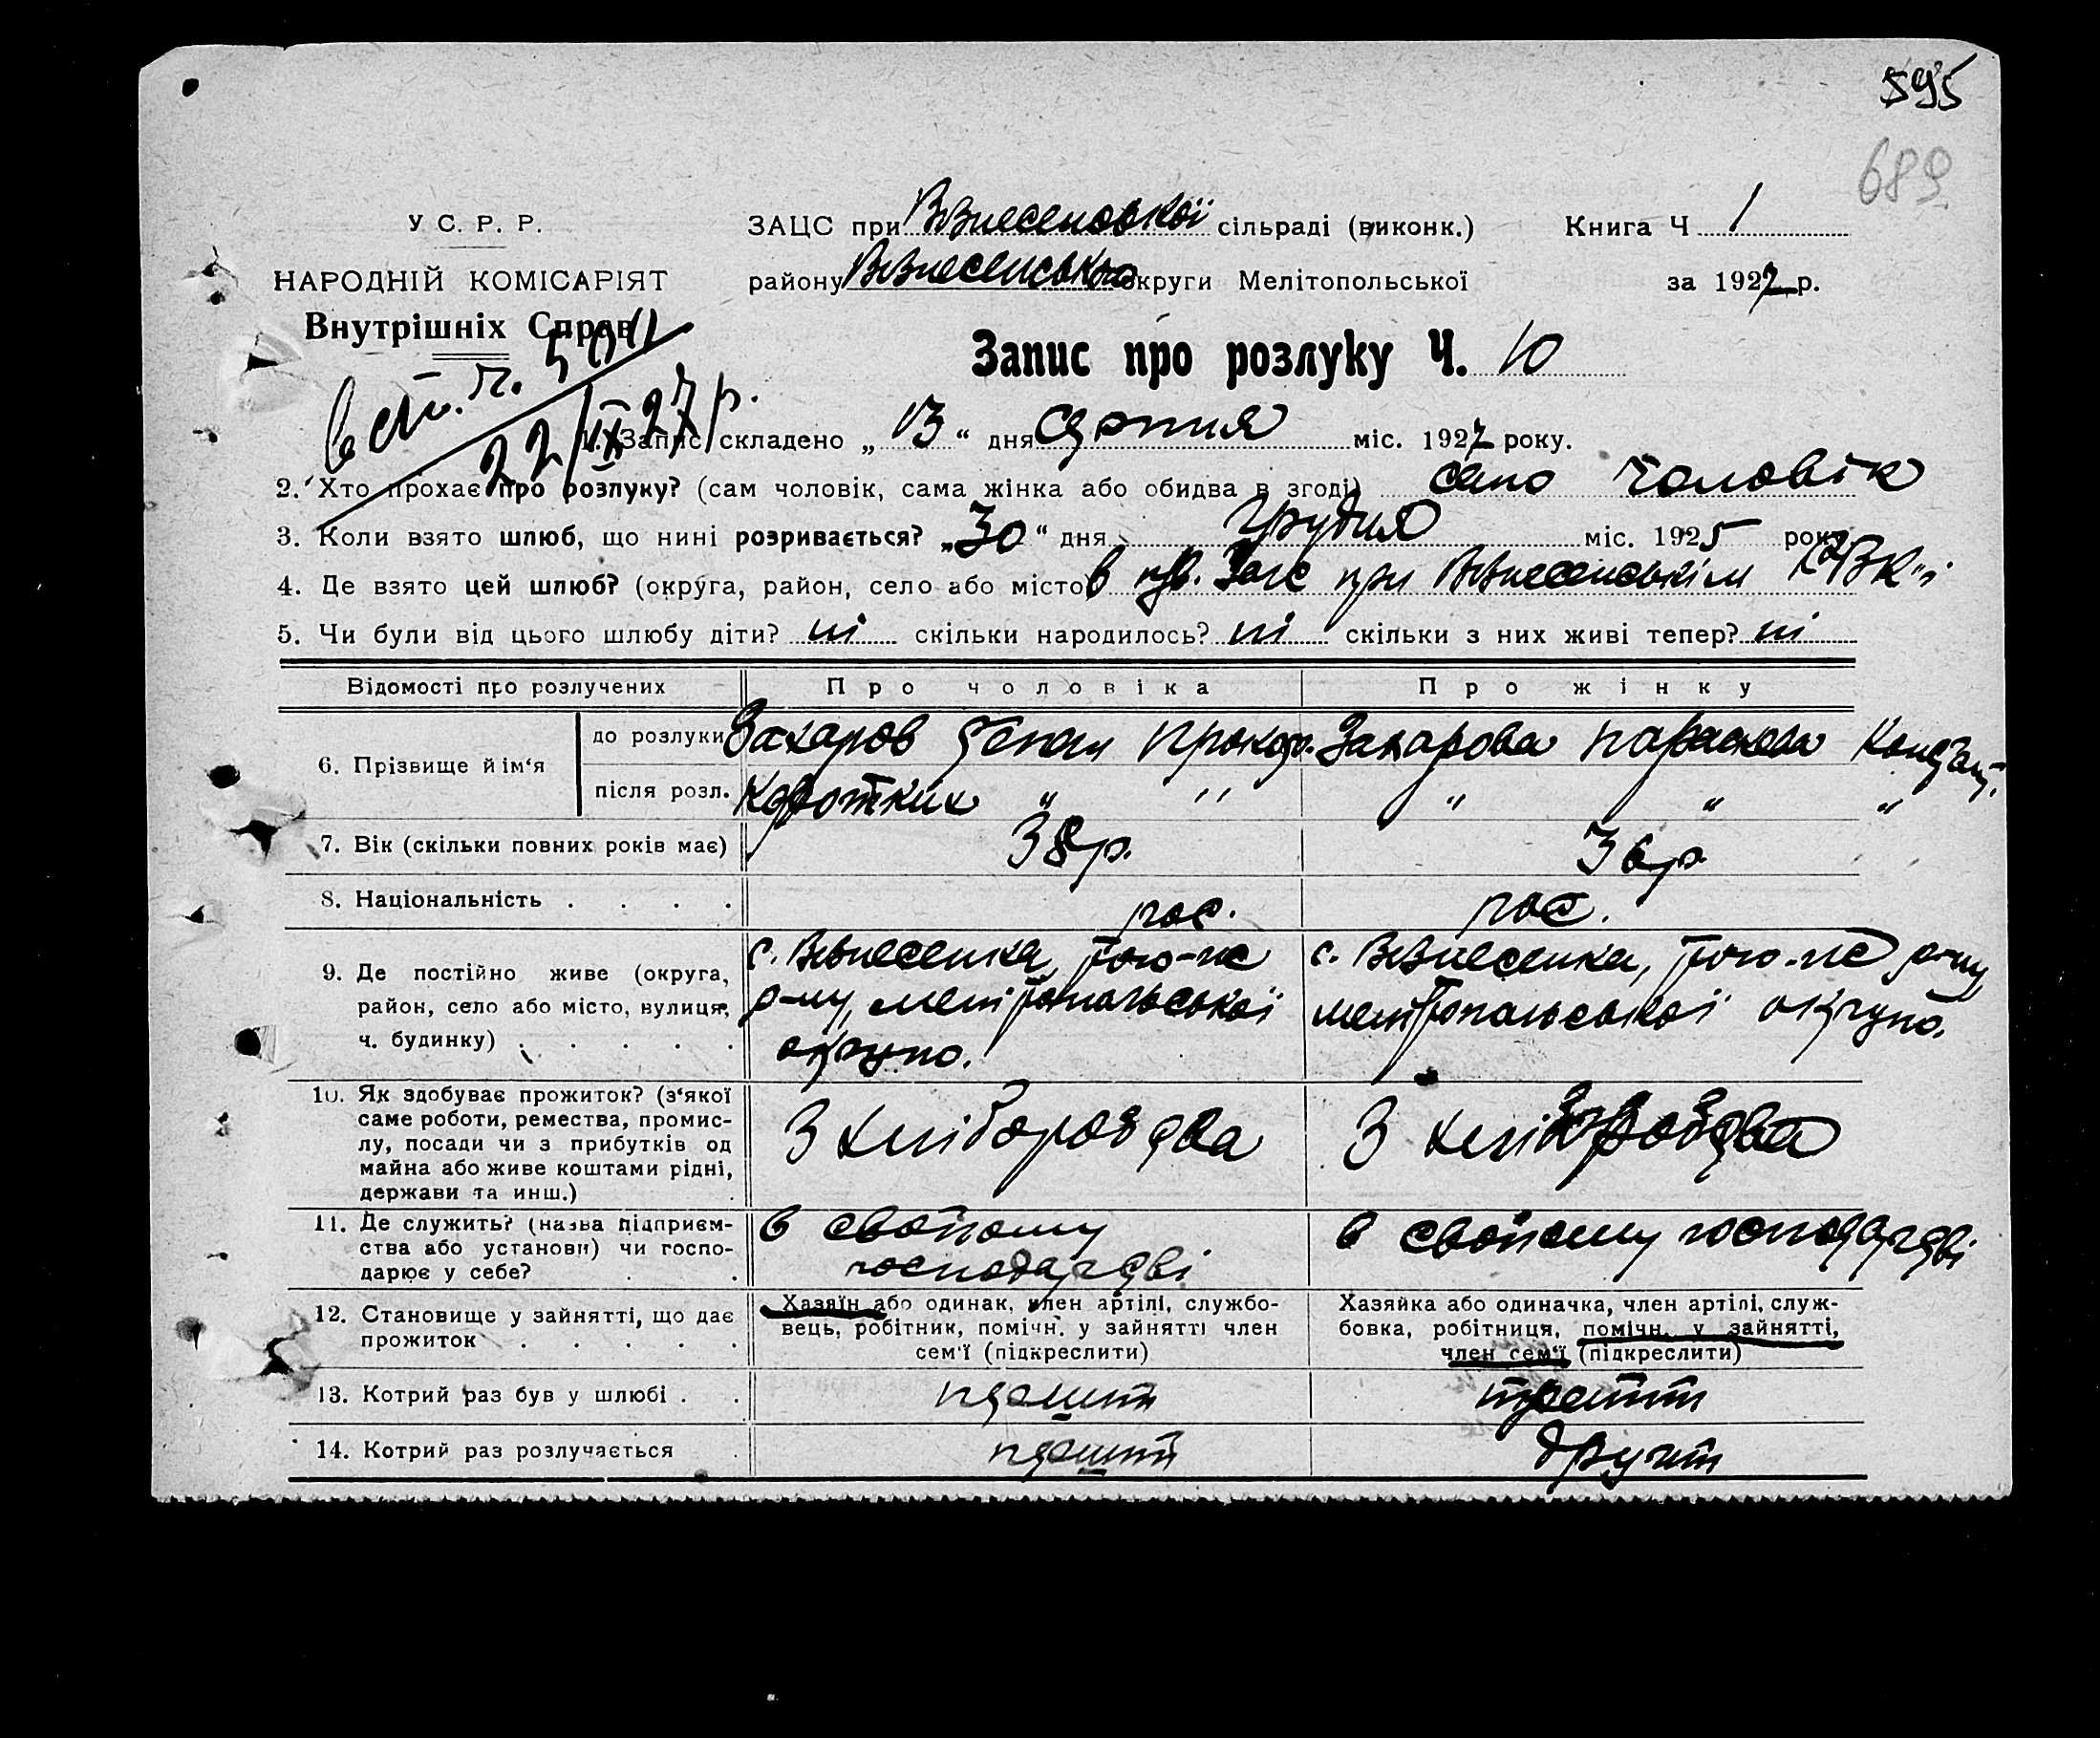 595
689
У С. Р. Р.
НАРОДНІЙ КОМІСАРІЯТ
Внутрішніх Справ
ЗАЦС при Ввнесенської сільраді (виконк.) Книга Ч 1
району Ввнесенського округи Мелітопольської за 1927 р.
22/IX 27 р.
Запис про розлуку Ч. 10
1. Запис складено „ 13 “ дня серпня міс. 1927 року.
2. Хто прохає про розлуку? (сам чоловік, сама жінка або обидва в згоді) сам чоловік
3. Коли взято шлюб, що нині розривається? „ 30 “ дня грудня міс. 1925 року
4. Де взято цей шлюб? (округа, район, село або місто в при Ввнесенськім РВК-і
5. Чи були від цього шлюбу діти? ні скільки народилось? ні скільки з них живі тепер? ні
Відомості про розлучених Про чоловіка Про жінку
6. Прізвище й ім‘я
до розлуки Захаров Степан Прокоп. Захарова Параскева
після розл. Коротких „ „ „ „ „
7. Вік (скільки повних років має) 38 р. 36 р.
8. Національність . . . . рос. рос.
9. Де постійно живе (округа,
район, село або місто, вулиця,
ч. будинку) . . . . .
с. Ввнесенка, того-ж
р-ну, мелітопольської
округи.
с. Ввнесенка, того-ж р-ну
мелітопольської округи.
10. Як здобуває прожиток? (з‘якої
саме роботи, ремества, промис-
лу, посади чи з прибутків од
майна або живе коштами рідні,
держави та инш.)
З хліборобства
З хліборобства
11. Де служить? (назва підприєм-
ства або установи) чи госпо-
дарює у себе?
в свойому
господарстві
в свойому господарстві
12. Становище у зайнятті, що дає
прожиток . . . . .
Хазяїн або одинак, член артілі, службо-
вець, робітник, помічн. у зайнятті член
сем‘ї (підкреслити)
Хазяйка або одиначка, член артілі, служ-
бовка, робітниця, помічн. у зайнятті,
член сем‘ї (підкреслити)
13. Котрий раз був у шлюбі . . перший третій
14. Котрий раз розлучається . перший другий